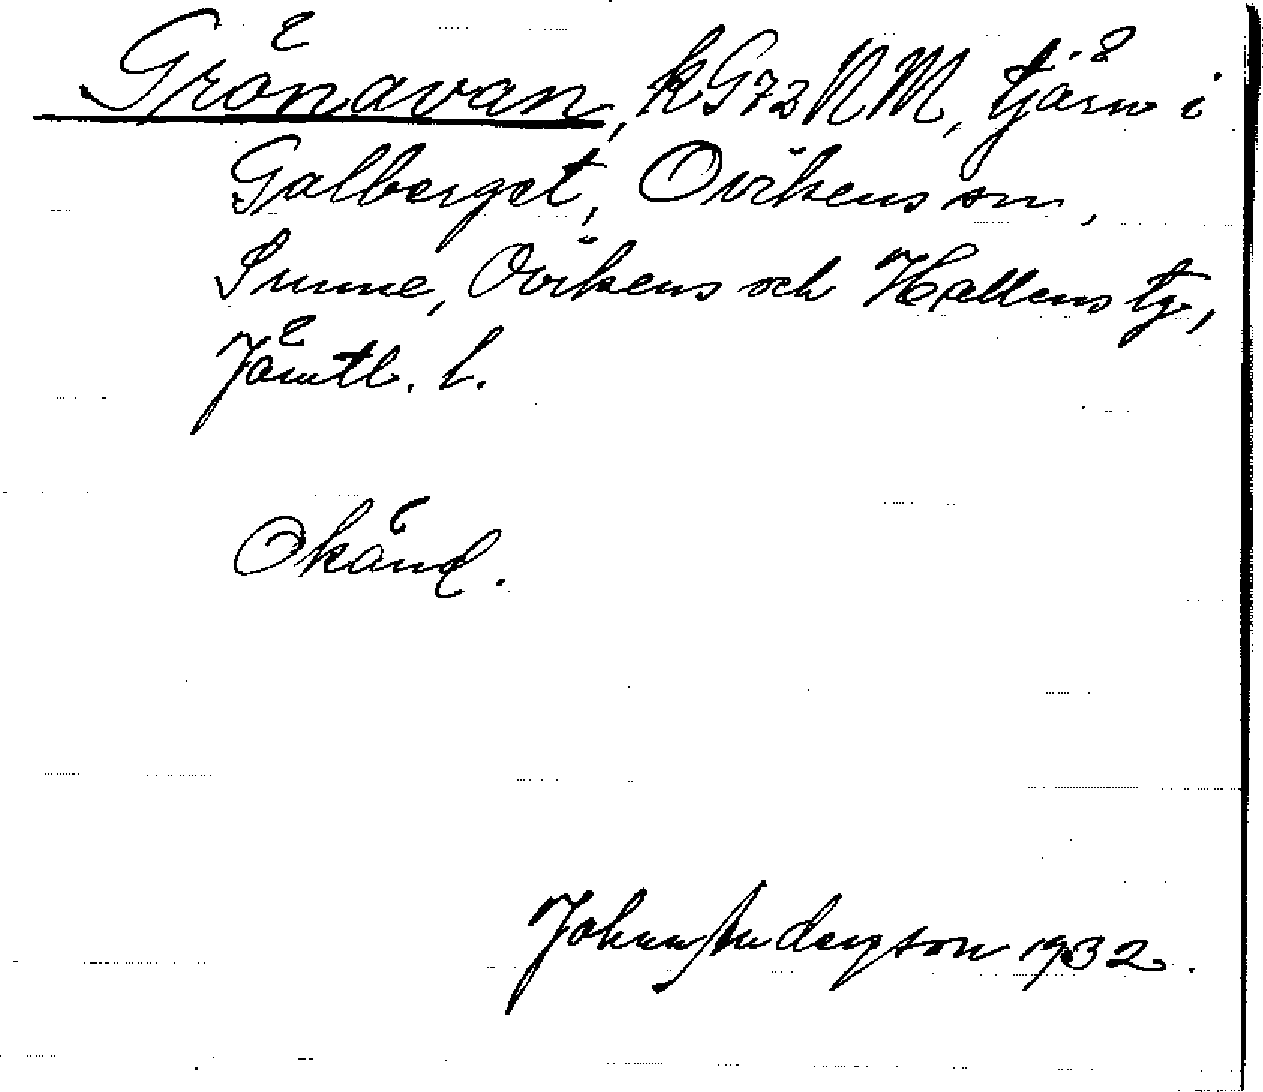 Grönavan, kG73NM, tjärn i
Galberget, Ovikens sn,
Sunne, Ovikens och Hallens tg,
Jämtl. l.
Okänd.
John Anderzson 1932.